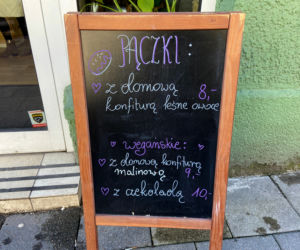 PĄCZKI:
z domową 8,-
konfiturą leśne owoce
wegańskie:
z domową konfiturą
malinową 9,-
z czekoladą 10,-